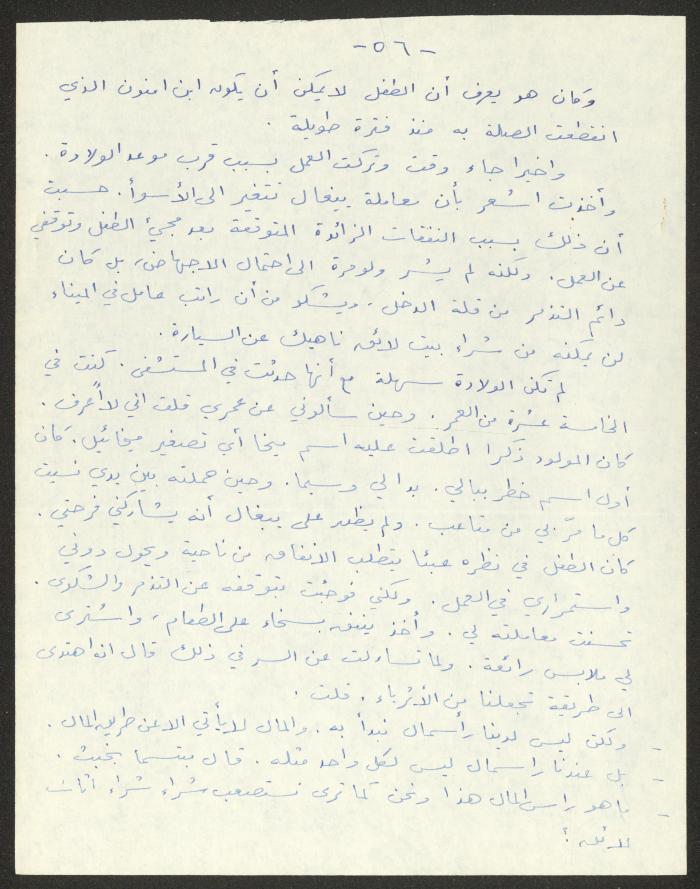 -٥٦-
وكان هو يعرف أن الطفل لا يمكن أن يكون ابن امنون الذي
انقطعت الصلة به منذ فترة طويلة .
واخيرا جاء وقت وتركت العمل بسبب قرب موعد الولادة .
وأخذت اشعر بأن معاملة يبغال تتغير الى الأسوأ . حسبت
أن ذلك بسبب النفقات الزائدة المتوقعة بعد مجيء الطفل وتوقفي
عن العمل . ولكنه لم يشر ولو مرة الى احتمال الاجهاض ، بل كان
دائم التذمر من قلة الدخل ، ويشكو من أن راتب عامل في الميناء
لن يمكنه من شراء بيت لائق ناهيك عن السيارة .
لم تكن الولادة سهلة مع أنها حدثت في المستشفى . كنت في
الخامسة عشرة من العمر . وحين سألوني عن عمري قلت اني لا أعرف .
كان المولود ذكرا اطلقت عليه اسم ميخا أي تصغير ميخائيل . كان
أول اسم خطر ببالي . بدا لي وسيما . وحين حملته بين يدي نسيت
كل ما مرّ بي من متاعب . ولم يظهر على يبغال أنه يشاركني فرحتي .
كان الطفل في نظره عبئا يتطلب الانفاق من ناحية ويحول دوني
واستمراري في العمل . ولكني فوجئت بتوقفه عن التذمر والشكوى .
تحسنت معاملته لي . وأخذ ينفق بسخاء على الطعام ، واشترى
لي ملابس رائعة . ولما تساءلت عن السر في ذلك قال انه اهتدى
الى طريقة تجعلنا من الأثرياء . قلت .
- ولكن ليس لدينا رأسمال نبدأ به . والمال لا يأتي الا عن طريق المال .
- بل عندنا رأسمال ليس لكل واحد مثله . قال مبتسما بخبث .
- ما هو راس المال هذا ونحن كما ترى نستصعب شراء شراء أثاث
لائق ؟